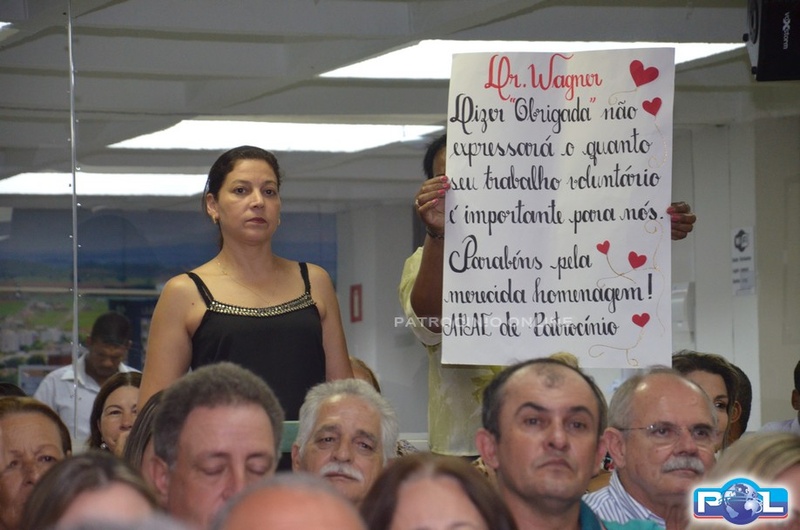 Dr. Wagner
Dizer "Obrigada" não
expressará o quanto
seu trabalho voluntário
é importante para nós.
Parabéns pela
merecida homenagem!
APAE de Patrocínio
PATROCINIO ONLINE
POL